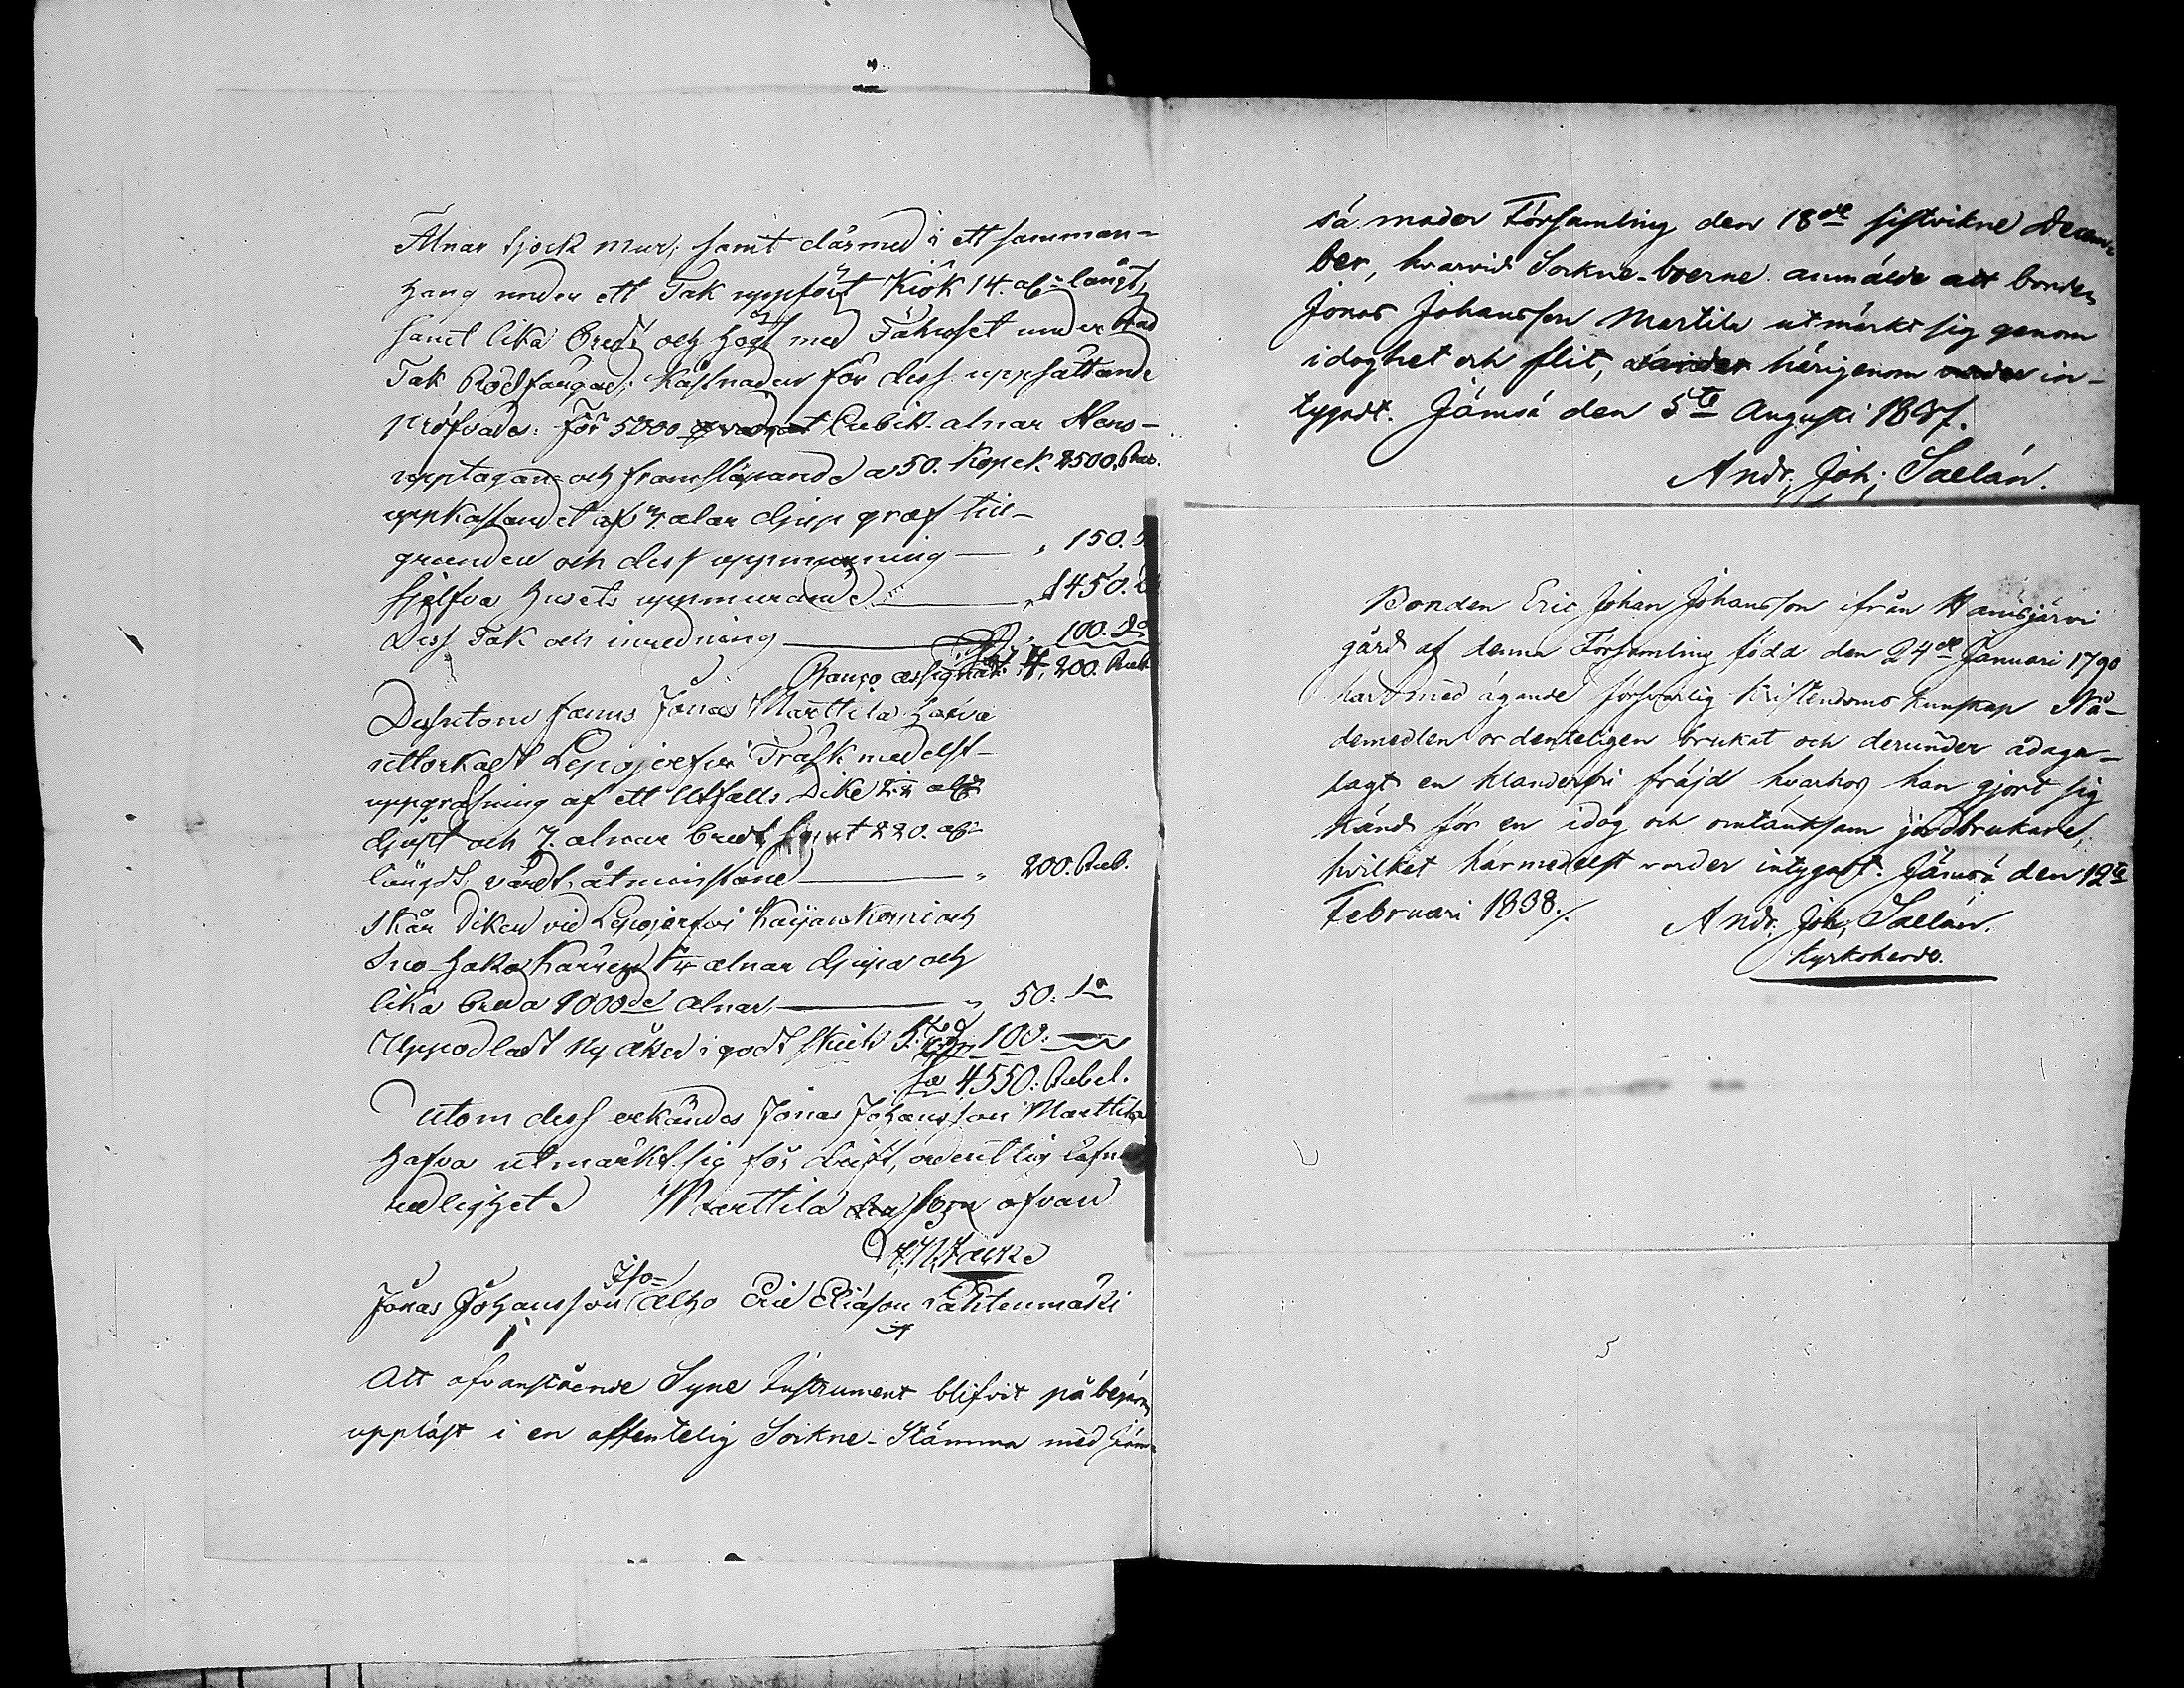 Alnar tjock mur, samt därmed i ett samman-
hang under ett Tak uppfört Kiök 14. al: långt,
samt lika Bredt och högt med Fähuset under Bräd
Tak Rödfärgad; kåstnaden för dess uppsättande
pröfvades: För 5000 Cubik alnar Stens-
upptagan- och framsläpande a 50. Kopek. 2500. Rub.
uppkastandet af alnar djup graf till-
grunden och dess uppmurning — " 150.
Sjelfva husets uppmurande — " 1450.
Dess Tak och inredning — " 100. Do
Banco assignat: 4,200. Rub
Dessutom fanns Jonas Marttila hafva
uttorkadt Lepojerfvi Träsk medelst-
uppgräfning af ett Utfalls Dike al:
djupt och 7. alnar bredt samt 220. al:
längd, värdt åtminstone — " 200. Rub.
Skär Diken vid Lepojerfvi och
Suo-haka Kärren alnar djupa och
lika breda 1000de alnar, — " 50. Do
Uppodladt ny åker i godt skick 5. 100.
Sa 4550. Rubel.
Utom dess erkändes Jonas Johansson Marttila
hafva utmärkt sig för drift, ordentlig lefnad
redlighet. Marttila som ofvan
Jonas Johansson Iso=Alho Eric Eliason Lahtenmäki
Att ofvanstående Syne Instrument blifvit på begäran
uppläst i en offentelig Sockne-Stämma med Jäm-
sä moder Församling den 18de sistvikne Decem-
ber, hvarvid Sockne-boerne anmälde att bonden
Jonas Johansson Martila utmärkt sig genom
idoghet och flit, varder härigenom in-
tygadt. Jämsä den 5te Augusti 1837.
Andr: Joh: Saelán.
Bonden Eric Johan Johansson ifrån Kanisjärvi
gård af denna Församling född den 24de Januari 1790
har med ägande försvarlig Kristendoms kunskap Nå-
demedlen ordenteligen brukat och derunder ådaga-
lagt en klanderfri fräjd hvarhos han gjort sig
känd för en idog och omtänksam jordbrukare,
hvilket härmedelst varder intygadt. Jämsä den 12te
Februari 1838./.
Andr: Joh: Saelán.
Kyrkoherde.